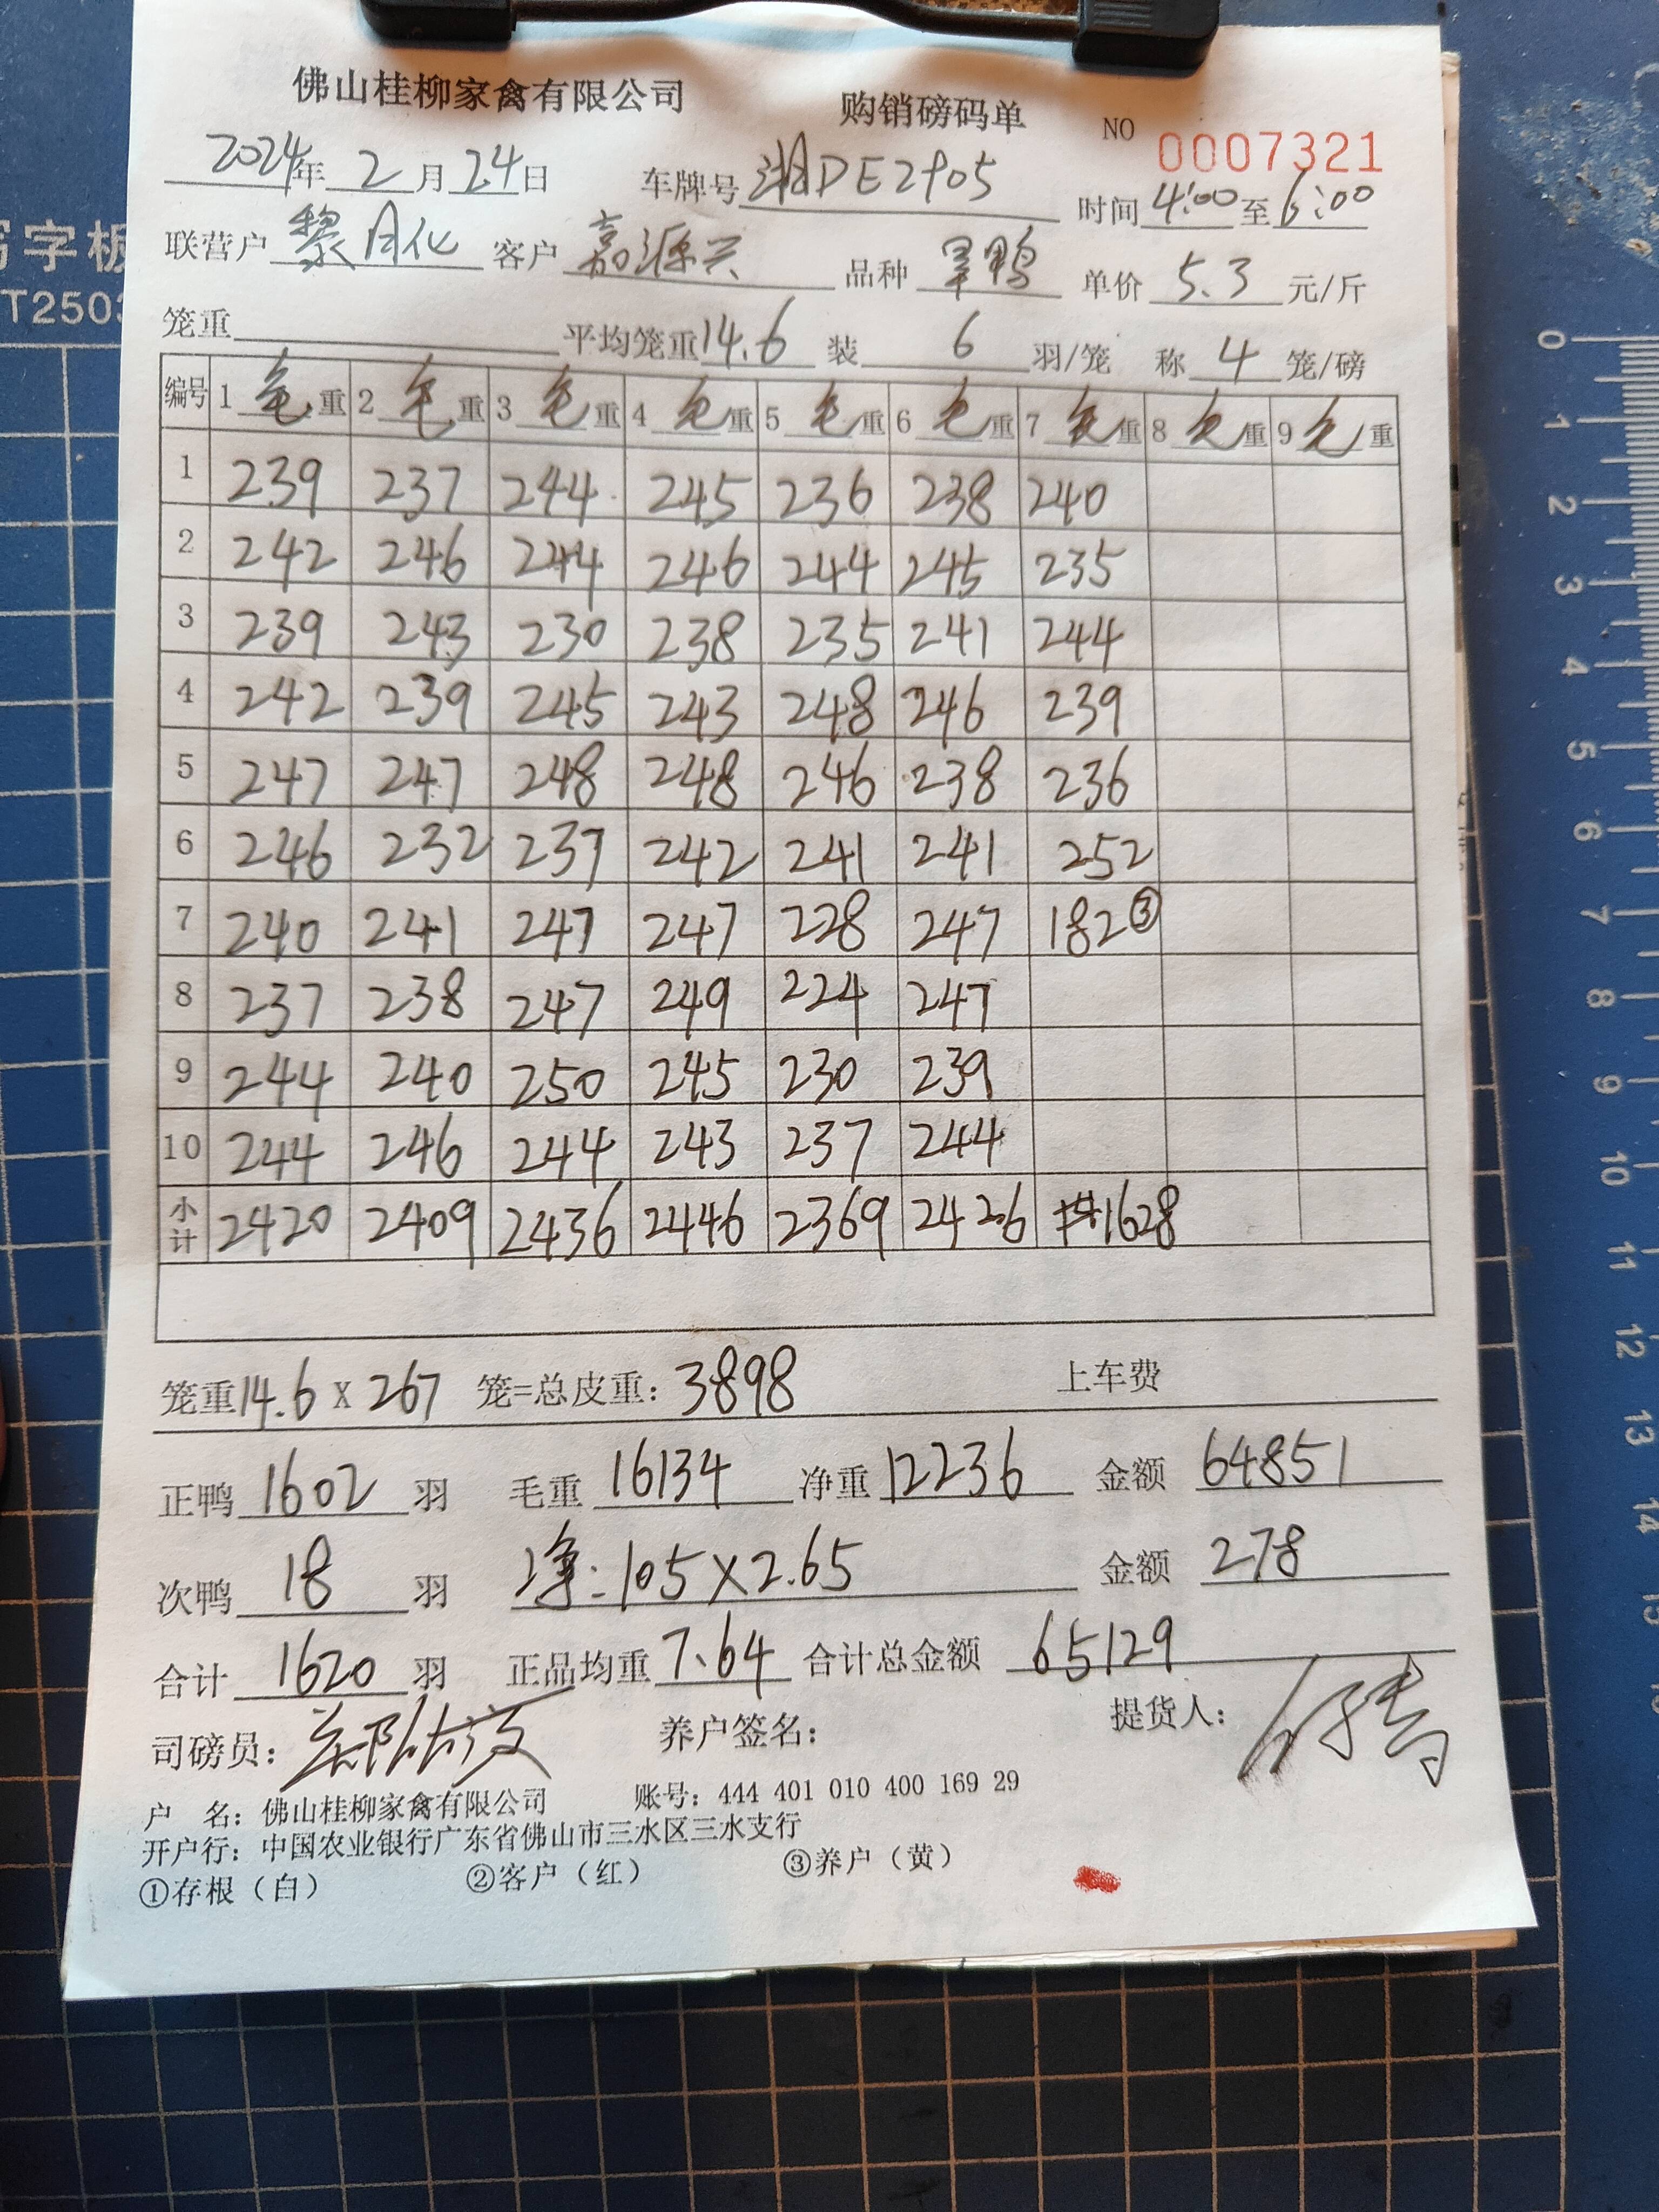 佛山桂柳家禽有限公司 购销磅码单 NO 0007321
2024年 2 月 24 日 车牌号 湘DE2905 时间 4:00 至 6:00
联营户 黎月化 客户 嘉源兴 品种 旱鸭 单价 5.3 元/斤
笼重 平均笼重 14.6 装 6 羽/笼 称 4 笼/磅
编号 1 毛 重 2 毛 重 3 毛 重 4 毛 重 5 毛 重 6 毛 重 7 毛 重 8 毛 重 9 毛 重
1 239 237 244 245 236 238 240
2 242 246 244 246 244 245 235
3 239 243 230 238 235 241 244
4 242 239 245 243 248 246 239
5 247 247 248 248 246 238 236
6 246 232 237 242 241 241 252
7 240 241 247 247 228 247 182③
8 237 238 247 249 224 247
9 244 240 250 245 230 239
10 244 246 244 243 237 244
小计 2420 2409 2436 2446 2369 2426 1628
笼重 14.6 X 267 笼=总皮重: 3898 上车费
正鸭 1602 羽 毛重 16134 净重 12236 金额 64851
次鸭 18 羽 净: 105×2.65 金额 278
合计 1620 羽 正品均重 7.64 合计总金额 65129
司磅员: 养户签名: 提货人:
户 名: 佛山桂柳家禽有限公司 账号: 444 401 010 400 169 29
开户行: 中国农业银行广东省佛山市三水区三水支行
①存根（白） ②客户（红） ③养户（黄）
写字板
T2503
0
1
2
3
4
5
6
7
8
9
10
11
12
13
14
15